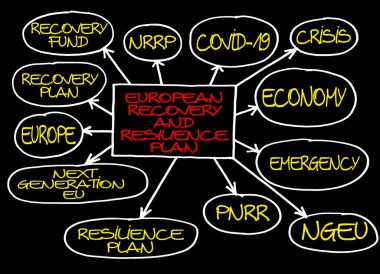 RECOVERY
FUND
NRRP
COVID-19
CRISIS
RECOVERY
PLAN
EUROPEAN
RECOVERY
AND
RESILIENCE
PLAN
ECONOMY
EUROPE
EMERGENCY
NEXT
GENERATION
EU
RESILIENCE
PLAN
PNRR
NGEU